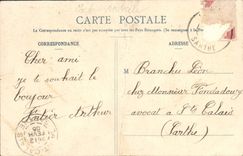 CARTE POSTALE
La Correspondance au recto n'est pas acceptée par tous les Pays Étrangers. (Se renseigner à la Poste)
CORRESPONDANCE
ADRESSE
SARTHE
Cher ami
je te souhait le
boujour
Arthur
M. Branchu Léon
chez Monsieur
avocat à St Calais
(Sarthe)